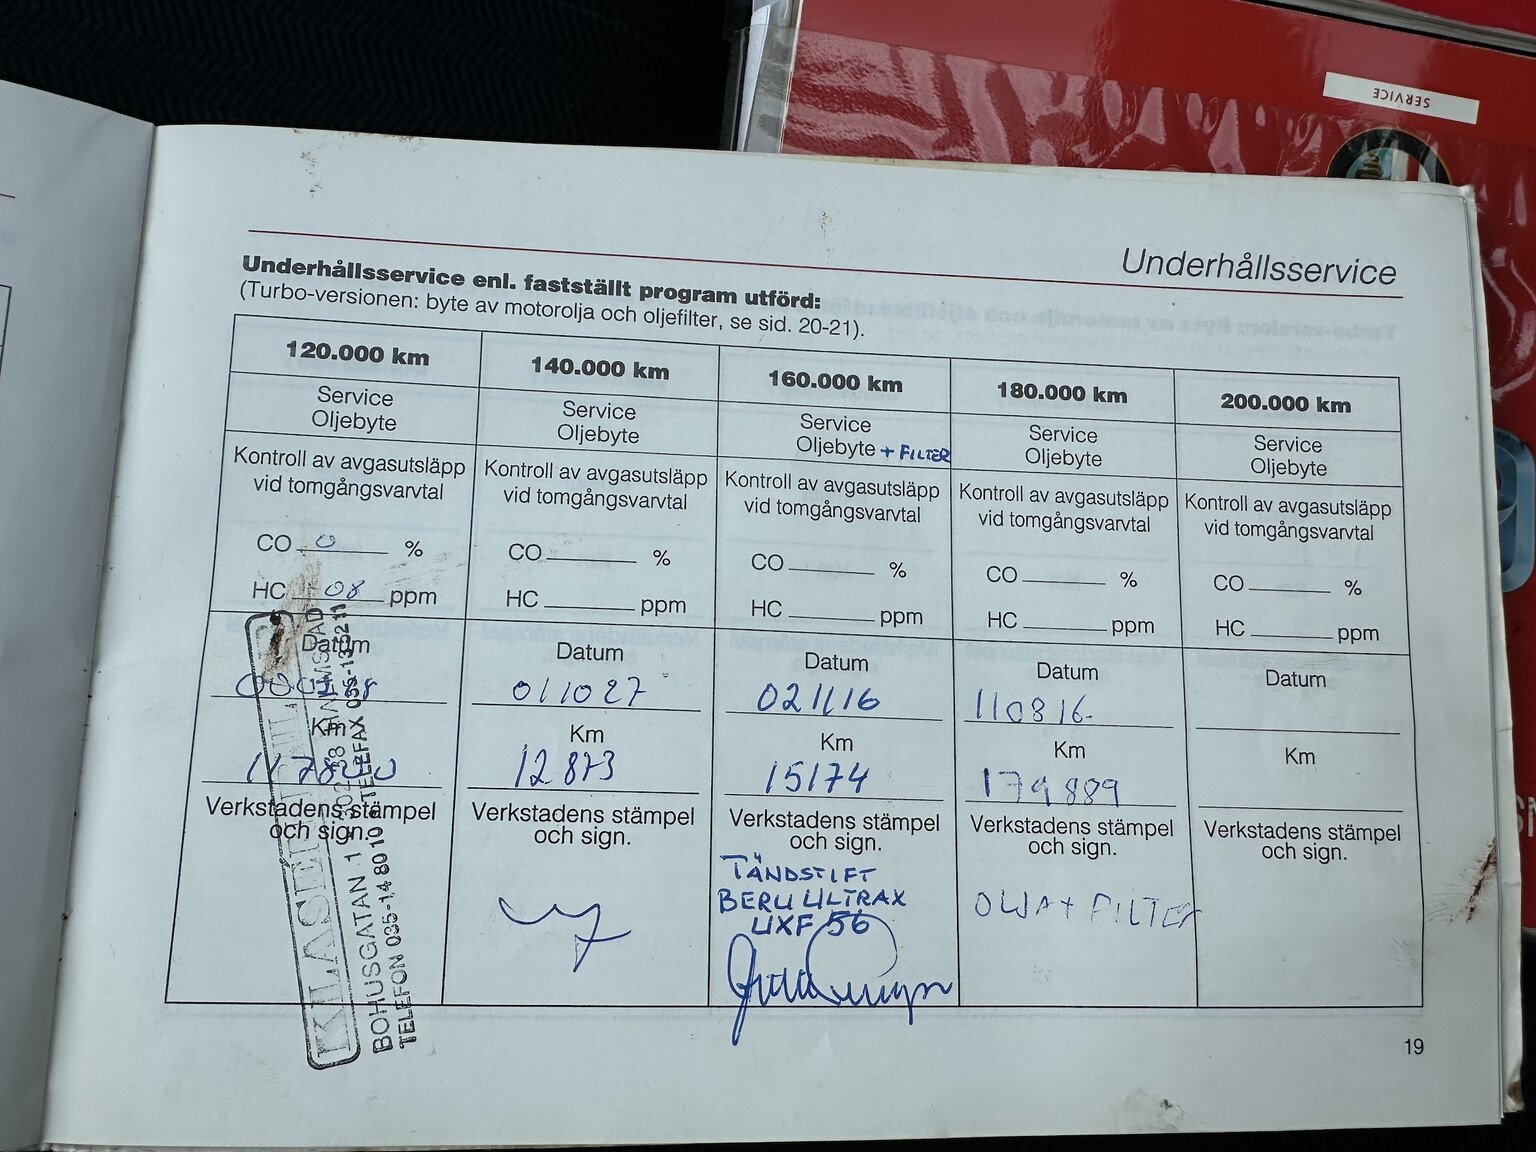 SERVICE
Underhållsservice
Underhållsservice enl. fastställt program utförd:
(Turbo-versionen: byte av motorolja och oljefilter, se sid. 20-21).
120.000 km
Service
Oljebyte
Kontroll av avgasutsläpp
vid tomgångsvarvtal
CO 0 %
HC 08 ppm
Datum
Km
Verkstadens stämpel
och sign.
BOHUSGATAN 1
HALMSTAD
TELEFON 035-14 80 10
TELEFAX 035-13 52 11
140.000 km
Service
Oljebyte
Kontroll av avgasutsläpp
vid tomgångsvarvtal
CO %
HC ppm
Datum
011027
Km
12873
Verkstadens stämpel
och sign.
160.000 km
Service
Oljebyte + FILTER
Kontroll av avgasutsläpp
vid tomgångsvarvtal
CO %
HC ppm
Datum
021116
Km
15174
Verkstadens stämpel
och sign.
TÄNDSTIFT
BERU ULTRAX
UXF 56
180.000 km
Service
Oljebyte
Kontroll av avgasutsläpp
vid tomgångsvarvtal
CO %
HC ppm
Datum
110816.
Km
179889
Verkstadens stämpel
och sign.
OLJA + FILTER
200.000 km
Service
Oljebyte
Kontroll av avgasutsläpp
vid tomgångsvarvtal
CO %
HC ppm
Datum
Km
Verkstadens stämpel
och sign.
19